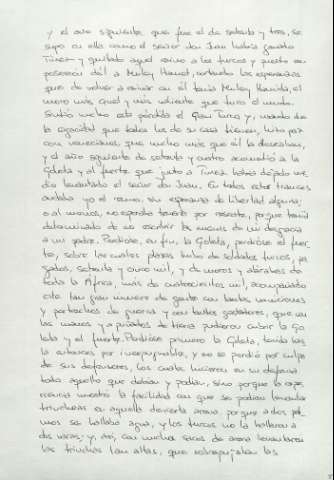 y el año siguiente, que fue el de setenta y tres, se
supo en ella como el señor don Juan había ganado
Túnez y quitado aquel reino a los turcos y puesto en
posesión dél a Muley Hamet, cortando las esperanzas
que de volver a reinar en él tenía Muley Hamida, el
moro más cruel y más valiente que tuvo el mundo.
Sintió mucho esta pérdida el Gran Turco y, usando de
la sagacidad que todos los de su casa tienen, hizo paz
con venecianos, que mucho más que él la deseaban,
y el año siguiente de setenta y cuatro acometió a la
Goleta y al fuerte que junto a Túnez había dejado me-
dio levantado el señor don Juan. En todos estos trances
andaba yo al remo, sin esperanza de libertad alguna;
a lo menos, no esperaba tenerla por rescate, porque tenía
determinado de no escribir las nuevas de mi desgracia
a mi padre. Perdióse, en fin, la Goleta, perdióse el fuer-
te, sobre las cuales plazas hubo de soldados turcos, pa-
gados, setenta y cinco mil, y de moros y alárabes de
toda la África, más de cuatrocientos mil, acompañado
este tan gran número de gente con tantas municiones
y pertrechos de guerra y con tantos gastadores, que con
las manos y a puñados de tierra pudieron cubrir la Go-
leta y el fuerte. Perdióse primero la Goleta, tenida has-
ta entonces por inexpugnable, y no se perdió por culpa
de sus defensores, los cuales hicieron en su defensa
todo aquello que debían y podían, sino porque la expe-
riencia mostró la facilidad con que se podían levantar
trincheras en aquella desierta arena, porque a dos pal-
mos se hallaba agua, y los turcos no la hallaron a
dos varas; y, así, con muchos sacos de arena levantaron
las trincheras tan altas, que sobrepujaban las